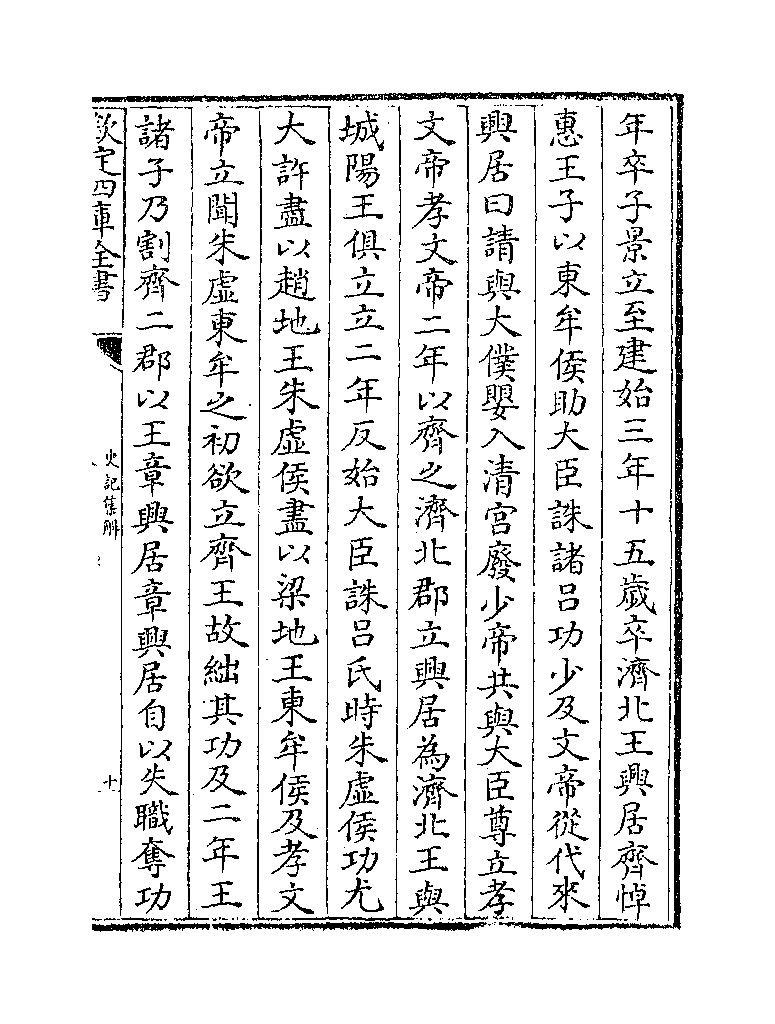 年卒子景立至建始三年十五歲卒濟北王興居齊悼
惠王子以東牟侯助大臣誅諸吕功少及文帝從代來
興居曰請與大僕嬰入清宫廢少帝共與大臣尊立孝
文帝孝文帝二年以齊之濟北郡立興居為濟北王與
城陽王俱立立二年反始大臣誅吕氏時朱虚侯功尤
大許盡以趙地王朱虚侯盡以梁地王東牟侯及孝文
帝立聞朱虚東牟之初欲立齊王故絀其功及二年王
諸子乃割齊二郡以王章興居章興居自以失職奪功
欽定四庫全書
史記集解
十